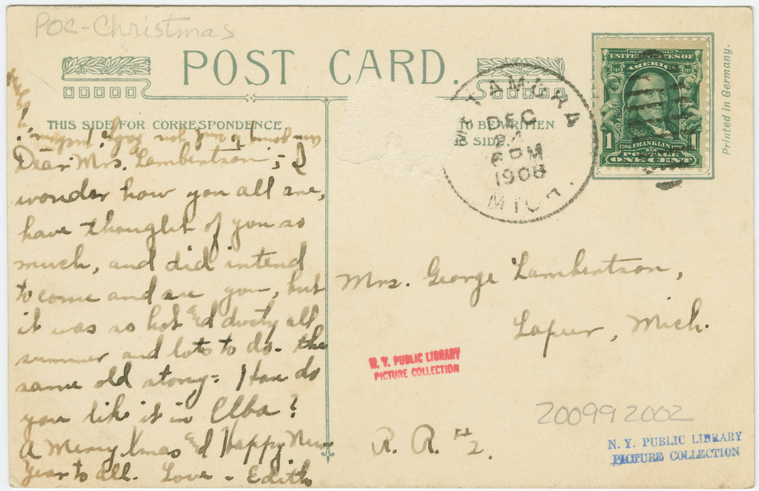 POC-Christmas
POST CARD.
THIS SIDE FOR CORRESPONDENCE
TO BE WRITTEN
SIDE.
METAMORA
DEC
6 PM
1908
MICH.
UNITED STATES OF
AMERICA
1 FRANKLIN 1
POSTAGE
ONE CENT
Printed in Germany.
Dear Mrs. Lambertson,- I
wonder how you all are,
have thought of you so
much, and did intend
to come and see you, but
it was so hot & dusty all
summer and lots to do- the
same old story- How do
you like it in Elba?
A Merry Xmas & Happy New
Year to all. Love - Edith
Mrs. George Lambertson,
Lapeer, Mich.
R. R. #2.
N. Y. PUBLIC LIBRARY
PICTURE COLLECTION
200992002
N. Y. PUBLIC LIBRARY
PICTURE COLLECTION